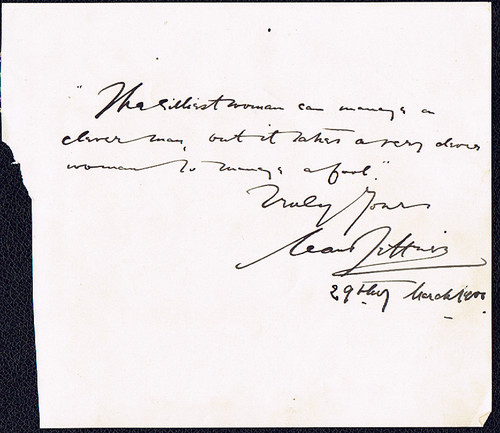 "The silliest woman can manage a
clever man, but it takes a very clever
woman to manage a fool."
Truly Yours
29th of March 1900